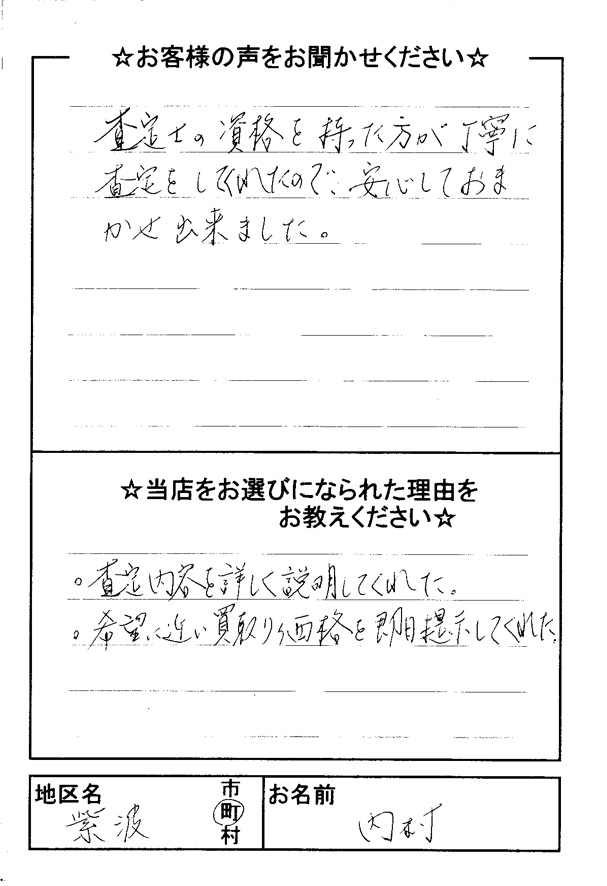 ☆お客様の声をお聞かせください☆
査定士の資格を持った方が丁寧に
査定をしてくれたので、安心しておま
かせ出来ました。
☆当店をお選びになられた理由を
お教えください☆
。査定内容を詳しく説明してくれた。
。希望に近い買取り価格を即日提示してくれた。
地区名
紫波
市
町
村
お名前
内村